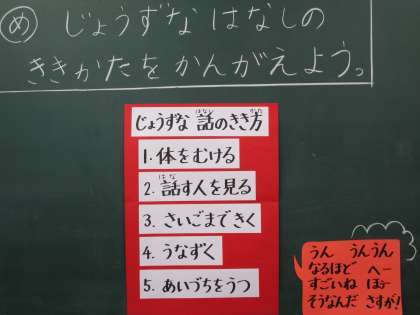 め じょうずな はなしの
ききかたを かんがえよう。
じょうずな 話のきき方
1.体をむける
2.話す人を見る
3.さいごまできく
4.うなずく
5.あいづちをうつ
うん うんうん
なるほど へー
すごいね ほー
そうなんだ さすが!